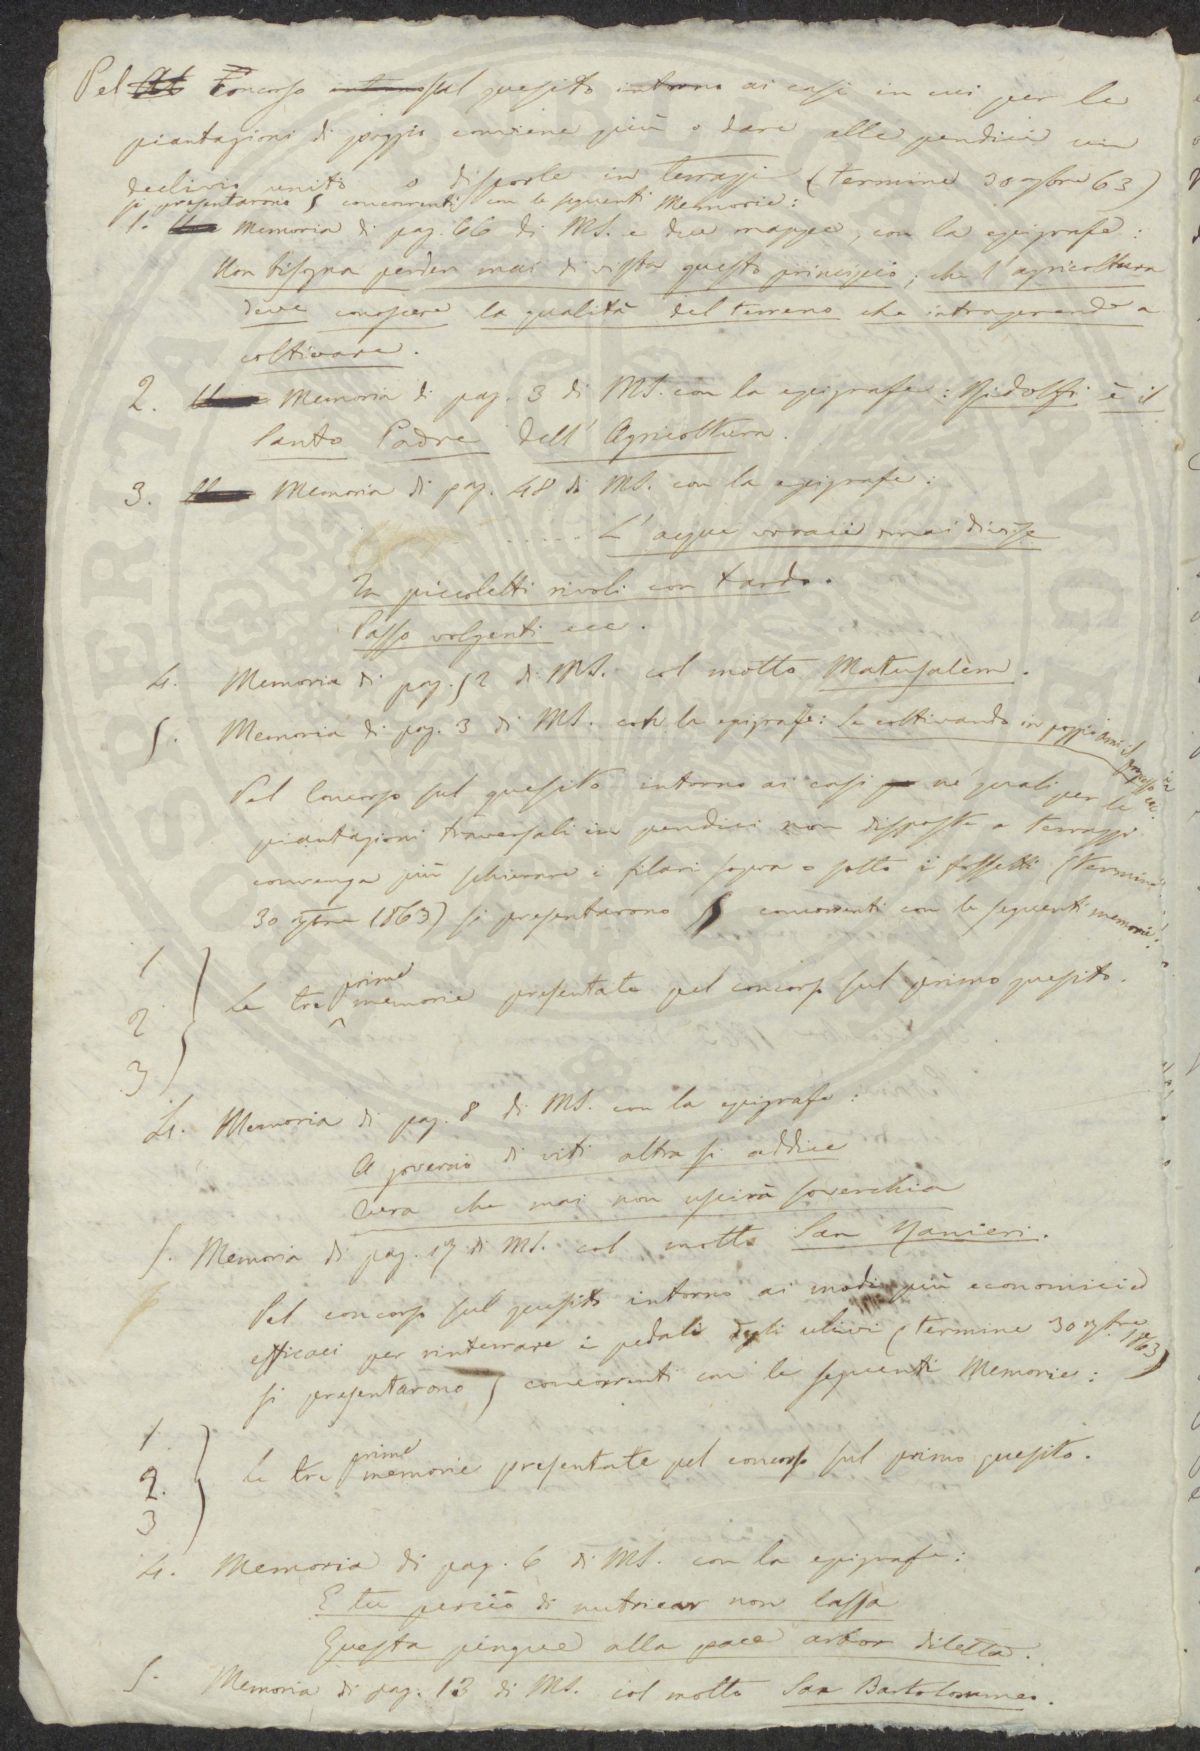 Pel Concorso sul quesito ai casi in cui per le
piantagioni di poggio conviene più o dare alle pendici un
declivio unito o disporle in terrazzi (termine 30 9bre 63)
si presentarono 5 concorrenti con le seguenti Memorie:
1. Memoria di pag. 66 di MS. e due mappe, con la epigrafe:
Non bisogna perder mai di vista questo principio; che l'agricoltura
deve conoscere la qualità del terreno che intraprende a
coltivare.
2. Memoria di pag. 3 di MS. con la epigrafe: Ridolfi è il
Santo Padre dell' Agricoltura.
3. Memoria di pag. 48 di MS. con la epigrafe:
..... L'acque voraci omai divise
In piccoletti rivoli con tardo
Passo volgenti ecc.
4. Memoria di pag. 52 di MS. col motto Matusalem.
5. Memoria di pag. 3 di MS. con la epigrafe: Se coltivando in poggio ami il
Pel Concorso sul quesito intorno ai casi ne' quali per le
piantagioni traversali in pendici non disposte a terrazzi
convenga più schierare i filari sopra o sotto i fossetti (termine
30 9bre 1863) si presentarono 5 concorrenti con le seguenti memorie:
1
2
3
Le tre prime memorie presentate pel concorso sul primo quesito.
4. Memoria di pag. 8 di MS. con la epigrafe:
A governo di viti altra si addice
Cura che mai non uscirà soverchia
5. Memoria di pag. 17 di MS. col motto San Ranieri.
Pel concorso sul quesito intorno ai modi più economici ed
efficaci per rinterrare i pedali degli ulivi (termine 30 9bre 1863)
si presentarono 5 concorrenti con le seguenti Memorie:
1
2.
3
Le tre prime memorie presentate pel concorso sul primo quesito.
4. Memoria di pag. 6 di MS. con la epigrafe:
E tu perciò di nutricar non lassa
Questa pingue alla pace arbor diletta.
5. Memoria di pag. 13 di MS. col motto San Bartolommeo.